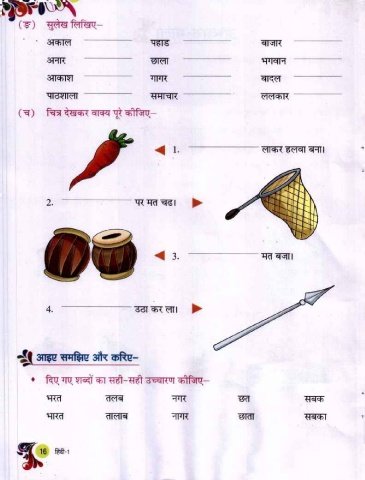 (ङ) सुलेख लिखिए–
अकाल पहाड बाजार
अनार छाला भगवान
आकाश गागर बादल
पाठशाला समाचार ललकार
(च) चित्र देखकर वाक्य पूरे कीजिए–
1. लाकर हलवा बना।
2. पर मत चढ।
3. मत बजा।
4. उठा कर ला।
आइए समझिए और करिए–
दिए गए शब्दों का सही-सही उच्चारण कीजिए–
भरत तलब नगर छत सबक
भारत तालाब नागर छाता सबका
16 हिंदी-1